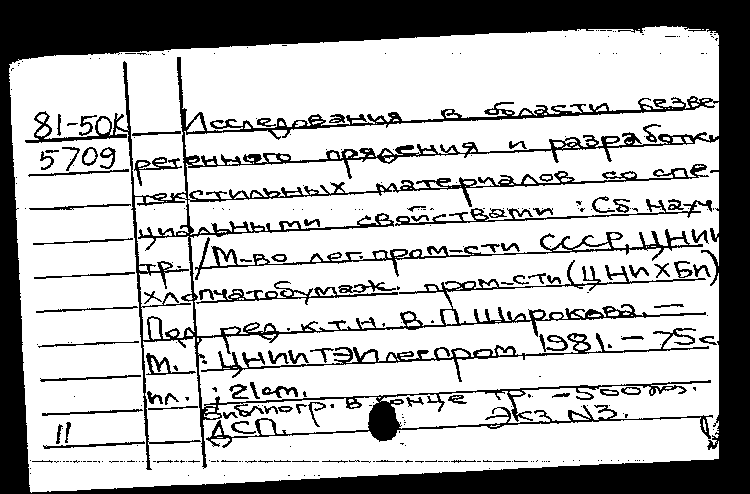 81-50К Исследования в области безве-
5709 ретенного прядения и разработки
текстильных материалов со спе-
циальными свойствами : Сб. науч.
тр. / М-во лег. пром-сти СССР, ЦНИИ
хлопчатобумаж. пром-сти (ЦНИХБИ)
Под ред. к.т.н. В.П. Широкова. —
М. : ЦНИИТЭИлегпром, 1981. – 75 с.
ил. ; 21 cm.
Библиогр. в конце тр. – 500 экз.
11 ДСП. Экз N3.